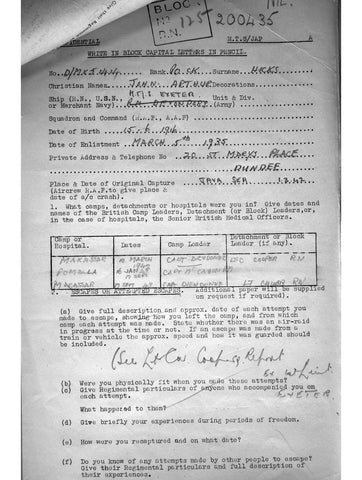 BLOC
No 125 200435
CONFIDENTIAL M.T.S/JAP A
WRITE IN BLOCK CAPITAL LETTERS IN PENCIL.
Rank Surname
Christian Names JOHN ARTHUR Decorations.
Ship (R.N., U.S.N., H.M.S EXETER Unit & Div.
or Merchant Navy) (Army)
Squadron and Command (R.A.F., A.A.F)
Date of Birth
Date of Enlistment MARCH 5th 1935
Private Address & Telephone No 20 ST MARYS PLACE
DUNDEE
Place & Date of Original Capture JAVA SEA 1.3.42
(Aircrew R.A.F. to give place &
date of a/c crash).
1. What camps, detachments or hospitals were you in? Give dates and
names of the British Camp Leaders, Detachment (or Block) Leaders, or,
in the case of hospitals, the Senior British Medical Officers.
Camp or Hospital. Dates Camp Leader Detachment or Block Leader (if any).
MAKASSAR MARCH 1942 COOPER RN
POMALLA
MACASSAR COOPER RN
2. ESCAPES OR ATTEMPTED ESCAPES. (Additional paper will be supplied
on request if required).
(a) Give full description and approx. date of each attempt you
made to escape, showing how you left the camp, and from which
camp each attempt was made. State whether there was an air-raid
in progress at the time or not. If an escape was made from a
train or vehicle the approx. speed and how it was guarded should
be included.
(See Report
(b) Were you physically fit when you made these attempts?
(c) Give Regimental particulars of anyone who accompanied you on
each attempt. EXETER
What happened to them?
(d) Give briefly your experiences during periods of freedom.
(e) How were you recaptured and on what date?
(f) Do you know of any attempts made by other people to escape?
Give their Regimental particulars and full description of
their experiences.